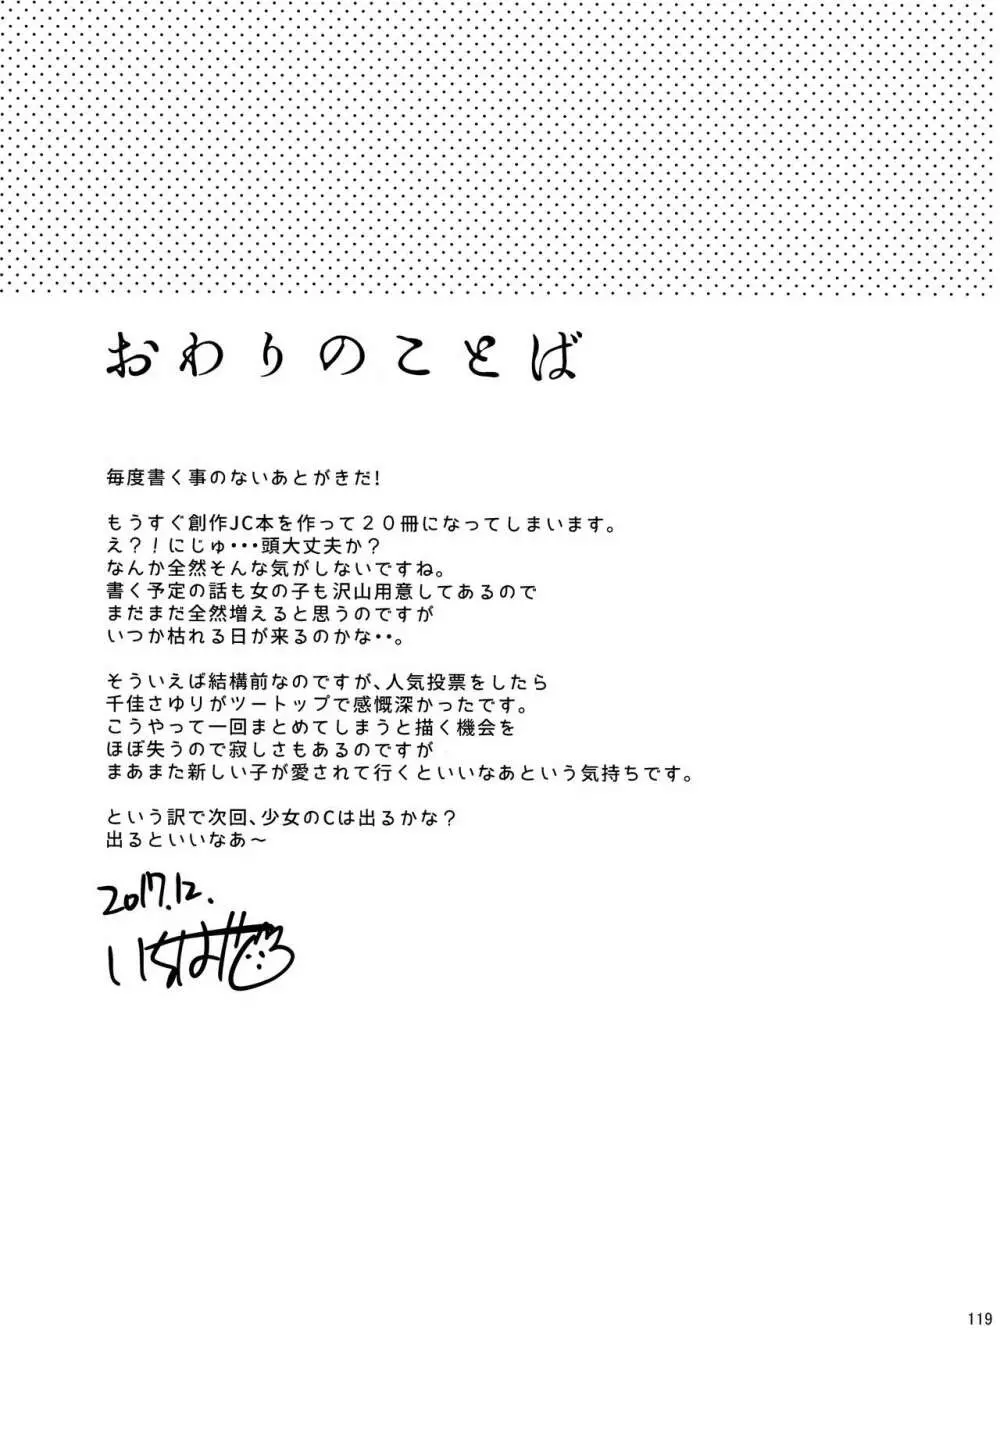 おわりのことば
毎度書く事のないあとがきだ!
もうすぐ創作JC本を作って20冊になってしまいます。
え?!にじゅ・・・頭大丈夫か?
なんか全然そんな気がしないですね。
書く予定の話も女の子も沢山用意してあるので
まだまだ全然増えると思うのですが
いつか枯れる日が来るのかな・・。
そういえば結構前なのですが、人気投票をしたら
千佳さゆりがツートップで感慨深かったです。
こうやって一回まとめてしまうと描く機会を
ほぼ失うので寂しさもあるのですが
まあまた新しい子が愛されて行くといいなあという気持ちです。
という訳で次回、少女のCは出るかな?
出るといいなあ〜
2017.12.
119